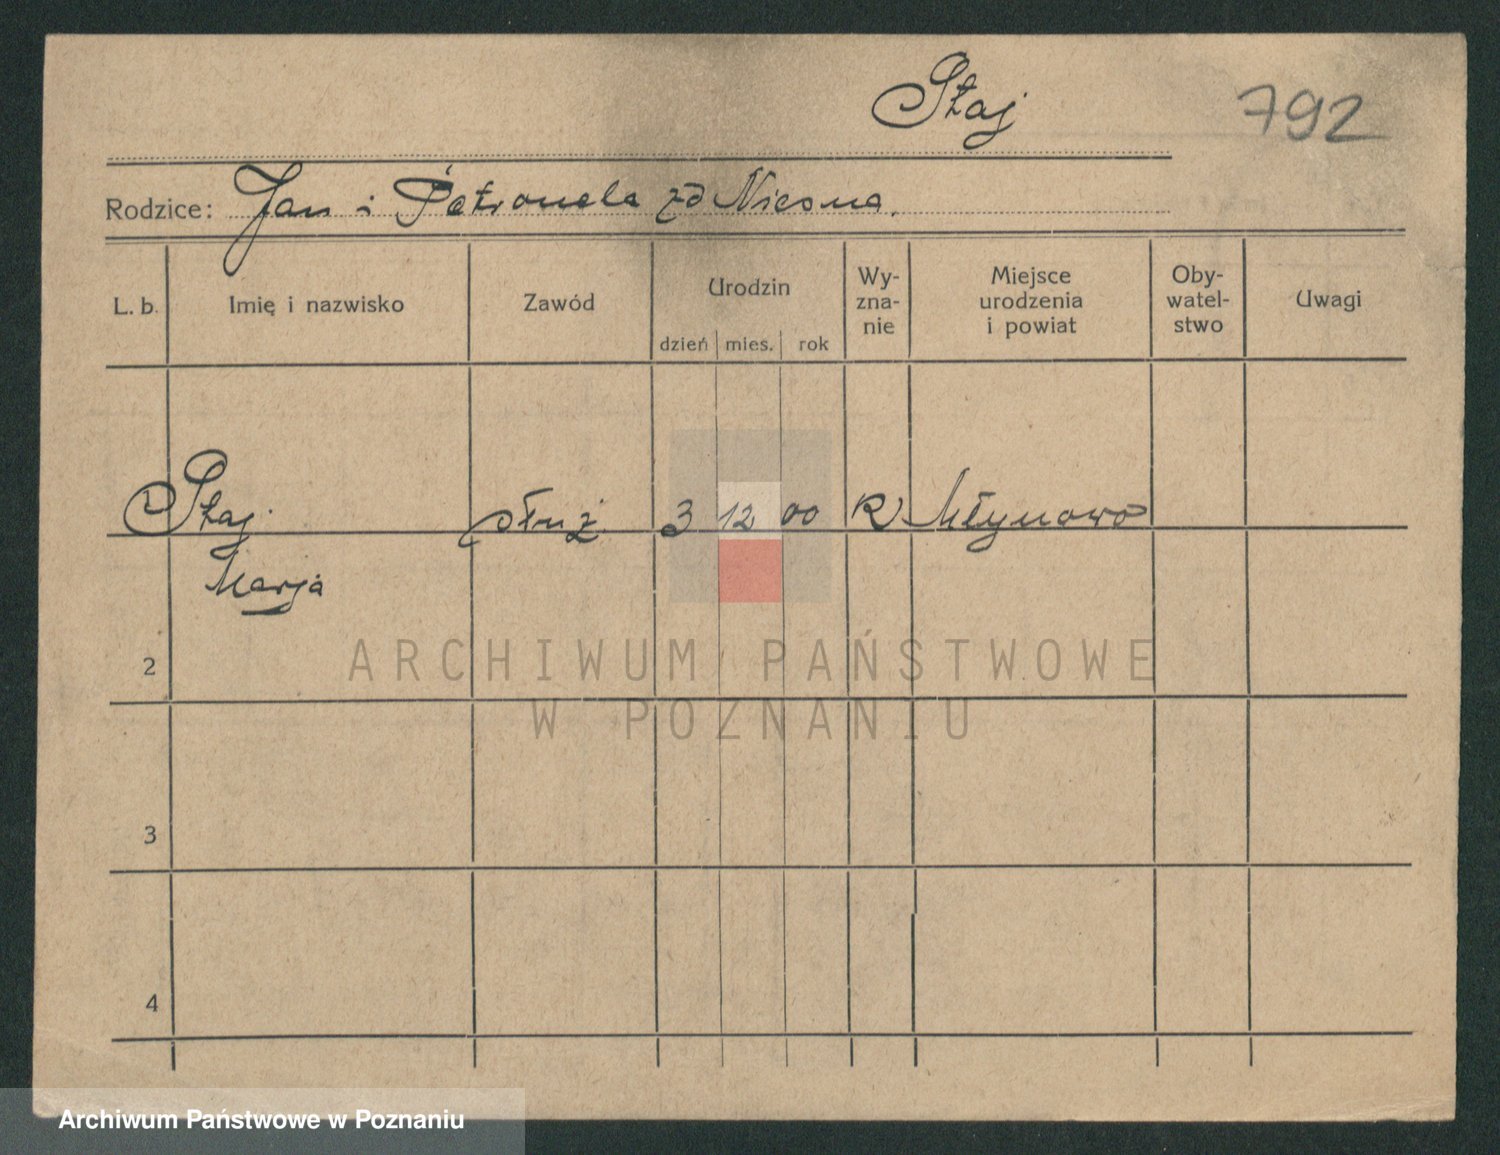 Staj
792
Rodzice: Jan i Petronela zd Niesna.
L. b.
Imię i nazwisko
Zawód
Urodzin
dzień mies. rok
Wy-
zna-
nie
Miejsce
urodzenia
i powiat
Oby-
watel-
stwo
Uwagi
1 Staj służ 3 12 00 R Młynowo
Marja
2
ARCHIWUM PAŃSTWOWE
W POZNANIU
3
4
Archiwum Państwowe w Poznaniu